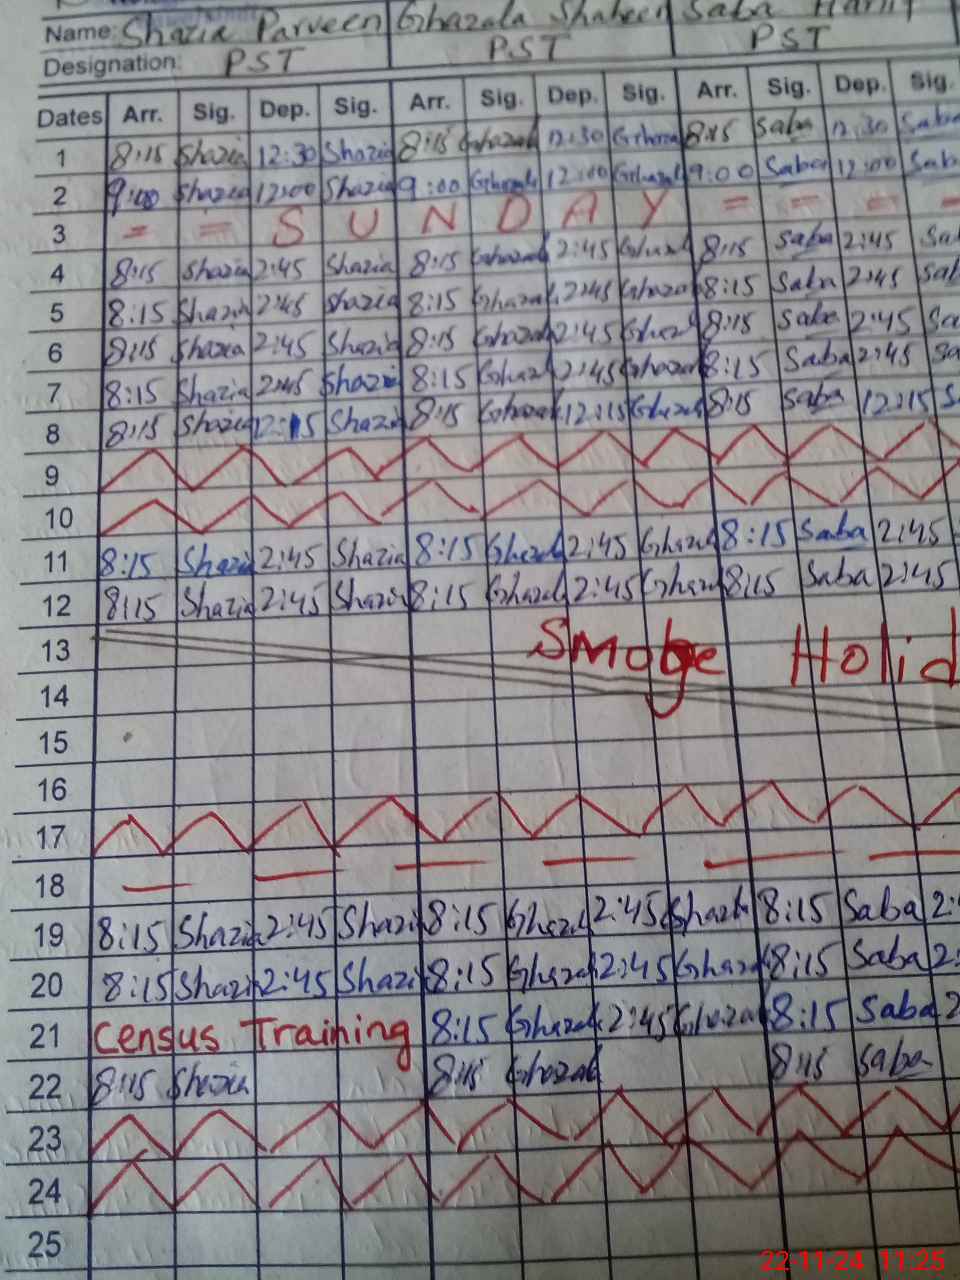 Name: Shazia Parveen Ghazala Shaheen Saba Hanif
Designation: PST PST PST
Dates Arr. Sig. Dep. Sig. Arr. Sig. Dep. Sig. Arr. Sig. Dep. Sig.
1 8:15 Shazia 12:30 Shazia 8:15 Ghazal 12:30 Ghaza 8:15 Saba 12:30 Saba
2 9:00 Shazia 12:00 Shazia 9:00 Ghazal 12:00 Ghazal 9:00 Saba 12:00 Sab
3 = = S U N D A Y = = = =
4 8:15 Shazia 2:45 Shazia 8:15 Ghazal 2:45 Ghazal 8:15 Saba 2:45 Sa
5 8:15 Shazia 2:45 Shazia 8:15 Ghazal 2:45 Ghazal 8:15 Saba 2:45 Sab
6 8:15 Shazia 2:45 Shazia 8:15 Ghazal 2:45 Ghazal 8:15 Saba 2:45 Sa
7 8:15 Shazia 2:45 Shazia 8:15 Ghazal 2:45 Ghazal 8:15 Saba 2:45 Sa
8 8:15 Shazia 12:15 Shazia 8:15 Ghazal 12:15 Ghazal 8:15 Saba 12:15 S
9
10
11 8:15 Shazia 2:45 Shazia 8:15 Ghazal 2:45 Ghazal 8:15 Saba 2:45
12 8:15 Shazia 2:45 Shazia 8:15 Ghazal 2:45 Ghazal 8:15 Saba 2:45
13 Smoge Holid
14
15
16
17
18
19 8:15 Shazia 2:45 Shazia 8:15 Ghazal 2:45 Ghazal 8:15 Saba 2:
20 8:15 Shazia 2:45 Shazia 8:15 Ghazal 2:45 Ghazal 8:15 Saba 2:
21 Census Training 8:15 Ghazal 2:45 Ghazal 8:15 Saba 2
22 8:15 Shazia 8:15 Ghazal 8:15 Saba
23
24
25
22-11-24 11:25